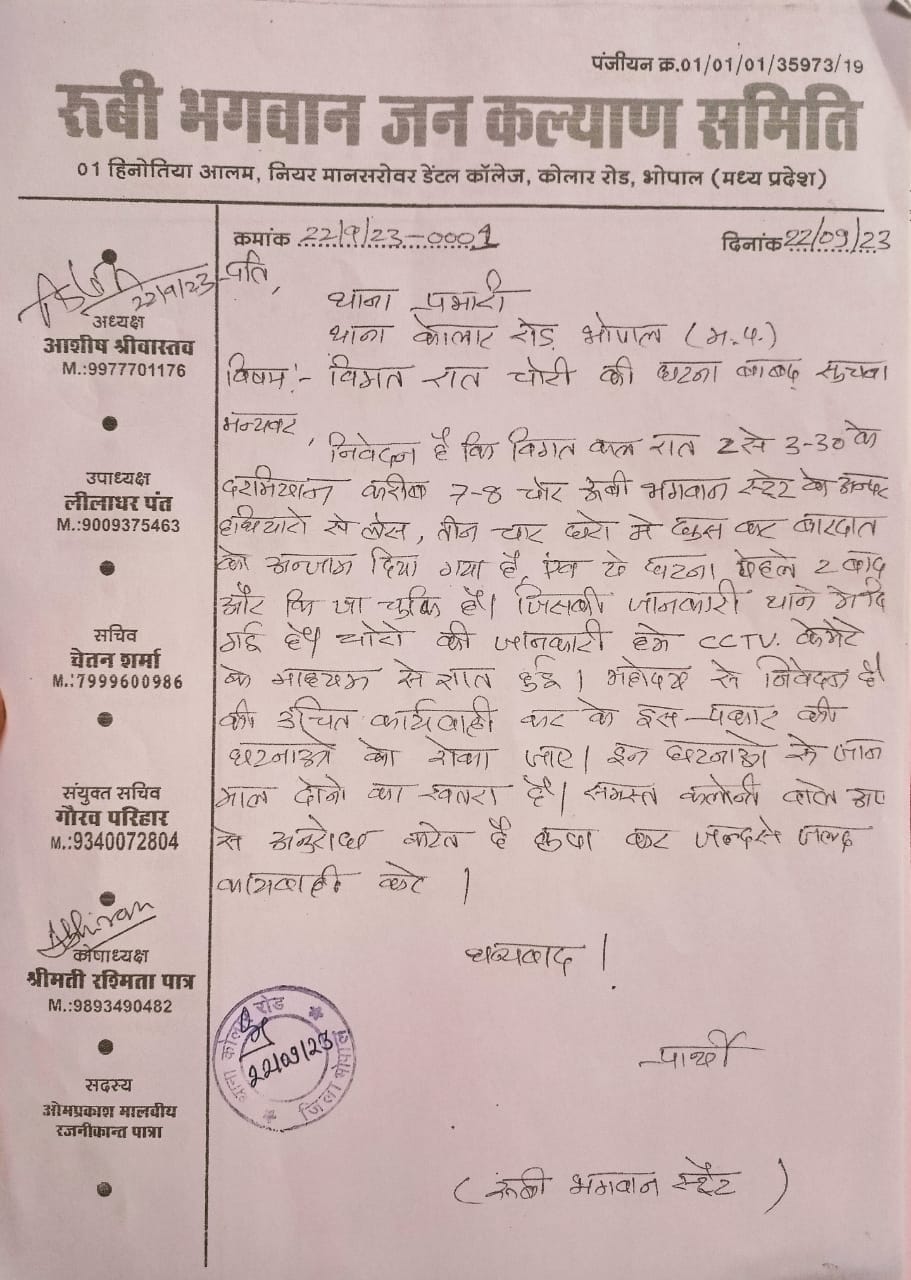 पंजीयन क्र.01/01/01/35973/19
रूबी भगवान जन कल्याण समिति
01 हिनोतिया आलम, नियर मानसरोवर डेंटल कॉलेज, कोलार रोड, भोपाल (मध्य प्रदेश)
क्रमांक 22/9/23-0001
दिनांक 22/09/23
22/9/23
अध्यक्ष
आशीष श्रीवास्तव
M.:9977701176
उपाध्यक्ष
लीलाधर पंत
M.:9009375463
सचिव
चेतन शर्मा
M.:7999600986
संयुक्त सचिव
गौरव परिहार
M.:9340072804
कोषाध्यक्ष
श्रीमती रश्मिता पात्र
M.:9893490482
सदस्य
ओमप्रकाश मालवीय
रजनीकान्त पात्रा
प्रति,
थाना प्रभारी
थाना कोलार रोड़ भोपाल (म.प्र.)
विषय:- विगत रात चोरी की घटना बाबद् सुचना
मन्यवर,
निवेदन है कि विगत कल रात 2 से 3-30 के
दरमियान करीब 7-8 चोर रूबी भगवान स्टेट के अन्दर
हथियारो से लेस, तीन चार घरो मे घुस कर वारदात
को अन्जाम दिया गया है, एंव ये घटना पेहले 2 बाद
और कि जा चुकि है। जिसकी जानकारी थाने मे दि
गई है। चोरो की जानकारी हमे CCTV. केमेरे
के माध्यम से ज्ञात हुई। महोदय से निवेदन है
की उचित कार्यवाही कर के इस प्रकार की
घटनाओ को रोका जाए। इन घटनाओ से जान
माल दोनो का खतरा है। समस्त कलोनी वाले आप
से अनुरोध करते है कृपा कर जल्द से जल्द
कार्यवाही करे।
धन्यवाद।
प्रार्थी
(रूबी भगवान स्टेट)
थाना कोलार रोड
जिला भोपाल
22/09/23